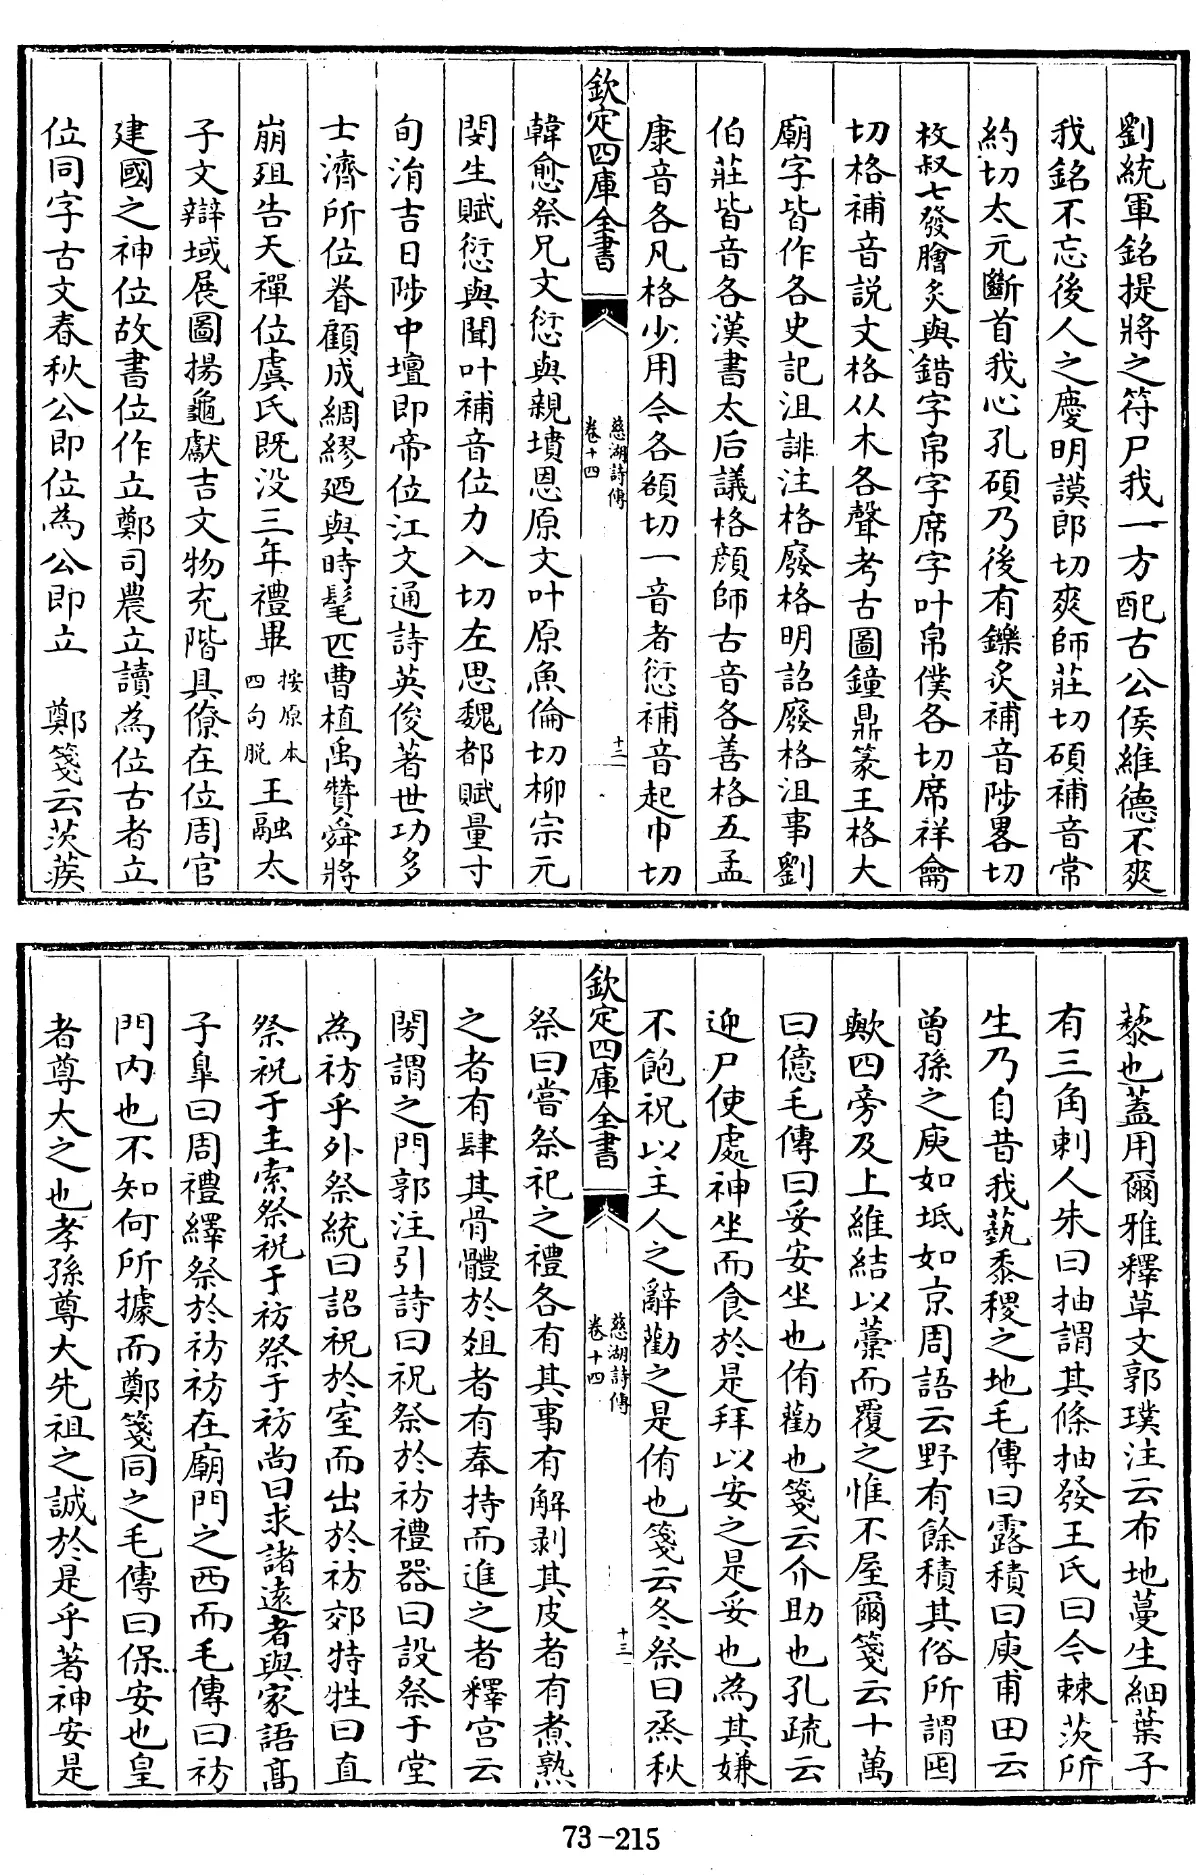 劉統軍銘提將之符尸我一方配古公侯維德不爽
我銘不忘後人之慶明謨郎切爽師莊切碩補音常
約切太元斷首我心孔碩乃後有鑠炙補音陟畧切
枚叔七發膾炙與錯字帛字席字叶帛僕各切席祥龠
切格補音説文格从木各聲考古圖鐘鼎篆王格大
廟字皆作各史記沮誹注格廢格明詔廢格沮事劉
伯莊皆音各漢書太后議格顔師古音各善格五孟
康音各凡格少用令各額切一音者愆補音起巾切
欽定四庫全書
慈湖詩傳
卷十四
十二
韓愈祭兄文愆與親墳恩原文叶原魚倫切柳宗元
閔生賦愆與聞叶補音位力入切左思魏都賦量寸
旬涓吉日陟中壇即帝位江文通詩英俊著世功多
士濟所位眷顧成綢繆廼與時髦匹曹植禹贊舜將
崩殂告天禪位虞氏既没三年禮畢
按原本
四句脱
王融太
子文辯域展圖揚龜獻吉文物充階具僚在位周官
建國之神位故書位作立鄭司農立讀為位古者立
位同字古文春秋公即位為公即立　鄭箋云茨蒺
蔾也蓋用爾雅釋草文郭璞注云布地蔓生細葉子
有三角刺人朱曰抽謂其條抽發王氏曰今棘茨所
生乃自昔我蓺黍稷之地毛傳曰露積曰庾甫田云
曾孫之庾如坻如京周語云野有餘積其俗所謂囤
歟四旁及上維結以藁而覆之惟不屋爾箋云十萬
曰億毛傳曰妥安坐也侑勸也箋云介助也孔疏云
迎尸使處神坐而食於是拜以安之是妥也為其嫌
不飽祝以主人之辭勸之是侑也箋云冬祭曰烝秋
欽定四庫全書
慈湖詩傳
卷十四
十三
祭曰嘗祭祀之禮各有其事有解剥其皮者有煮熟
之者有肆其骨體於俎者有奉持而進之者釋宫云
閍謂之門郭注引詩曰祝祭於祊禮器曰設祭于堂
為祊乎外祭統曰詔祝於室而出於祊郊特牲曰直
祭祝于主索祭祝于祊祭于祊尚曰求諸遠者與家語髙
子臯曰周禮繹祭於祊祊在廟門之西而毛傳曰祊
門内也不知何所據而鄭箋同之毛傳曰保安也皇
者尊大之也孝孫尊大先祖之誠於是乎著神安是
73-215